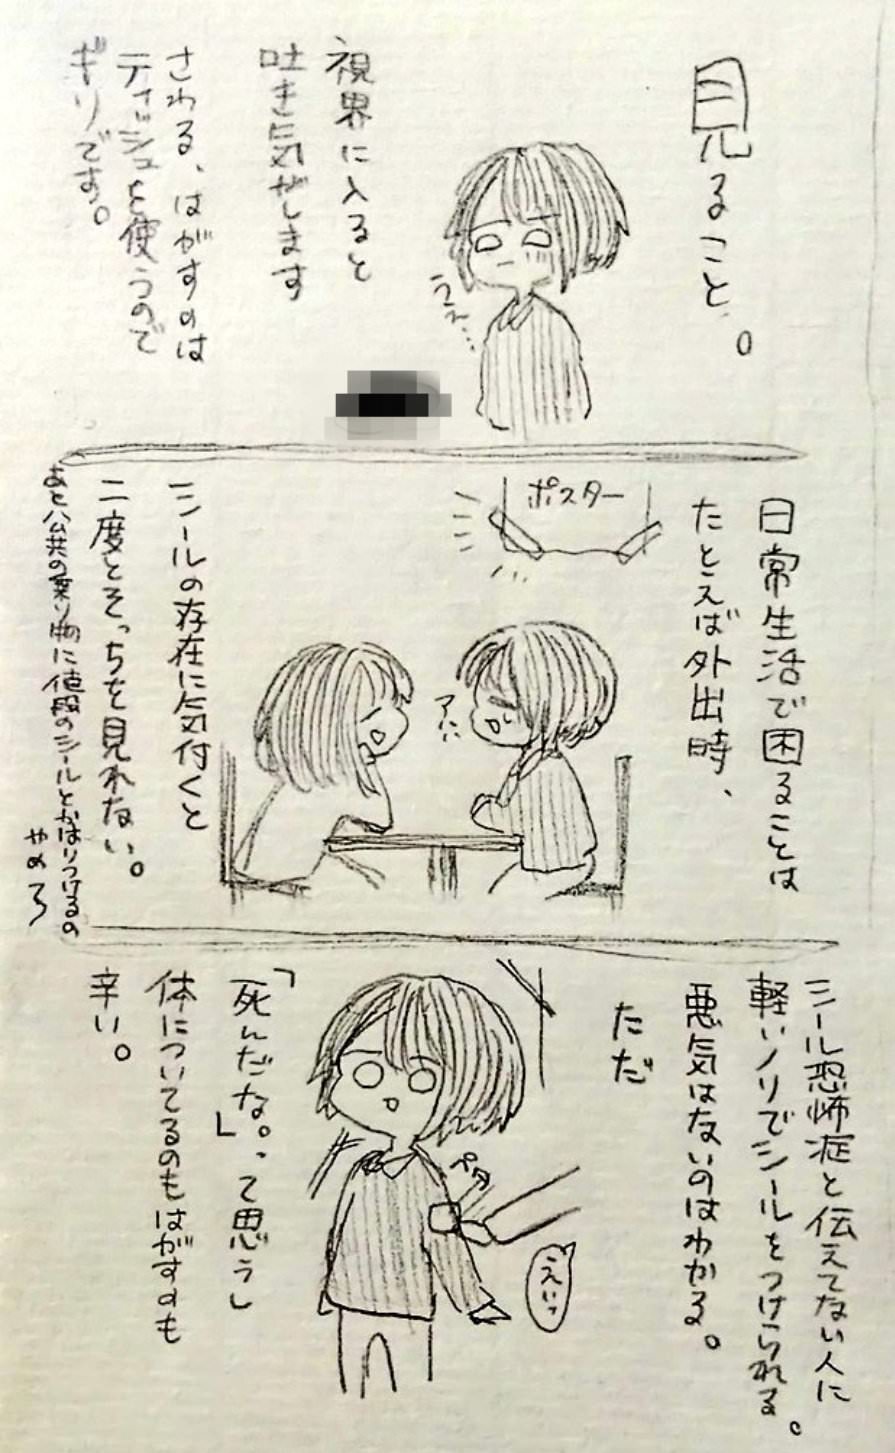 見ること。
視界に入ると
吐き気がします
うえ…
さわる、はがすのは
ティッシュを使うので
ギリです。
日常生活で困ることは
たとえば外出時、
ポスター
アハハ
シールの存在に気付くと
二度とそっちを見れない。
あと公共の乗り物に値段のシールとかはりつけるの
やめろ
シール恐怖症と伝えてない人に
軽いノリでシールをつけられる。
悪気はないのはわかる。
ただ
ペタ
えいっ
「死んだな。」って思うし
体についてるのもはがすのも
辛い。